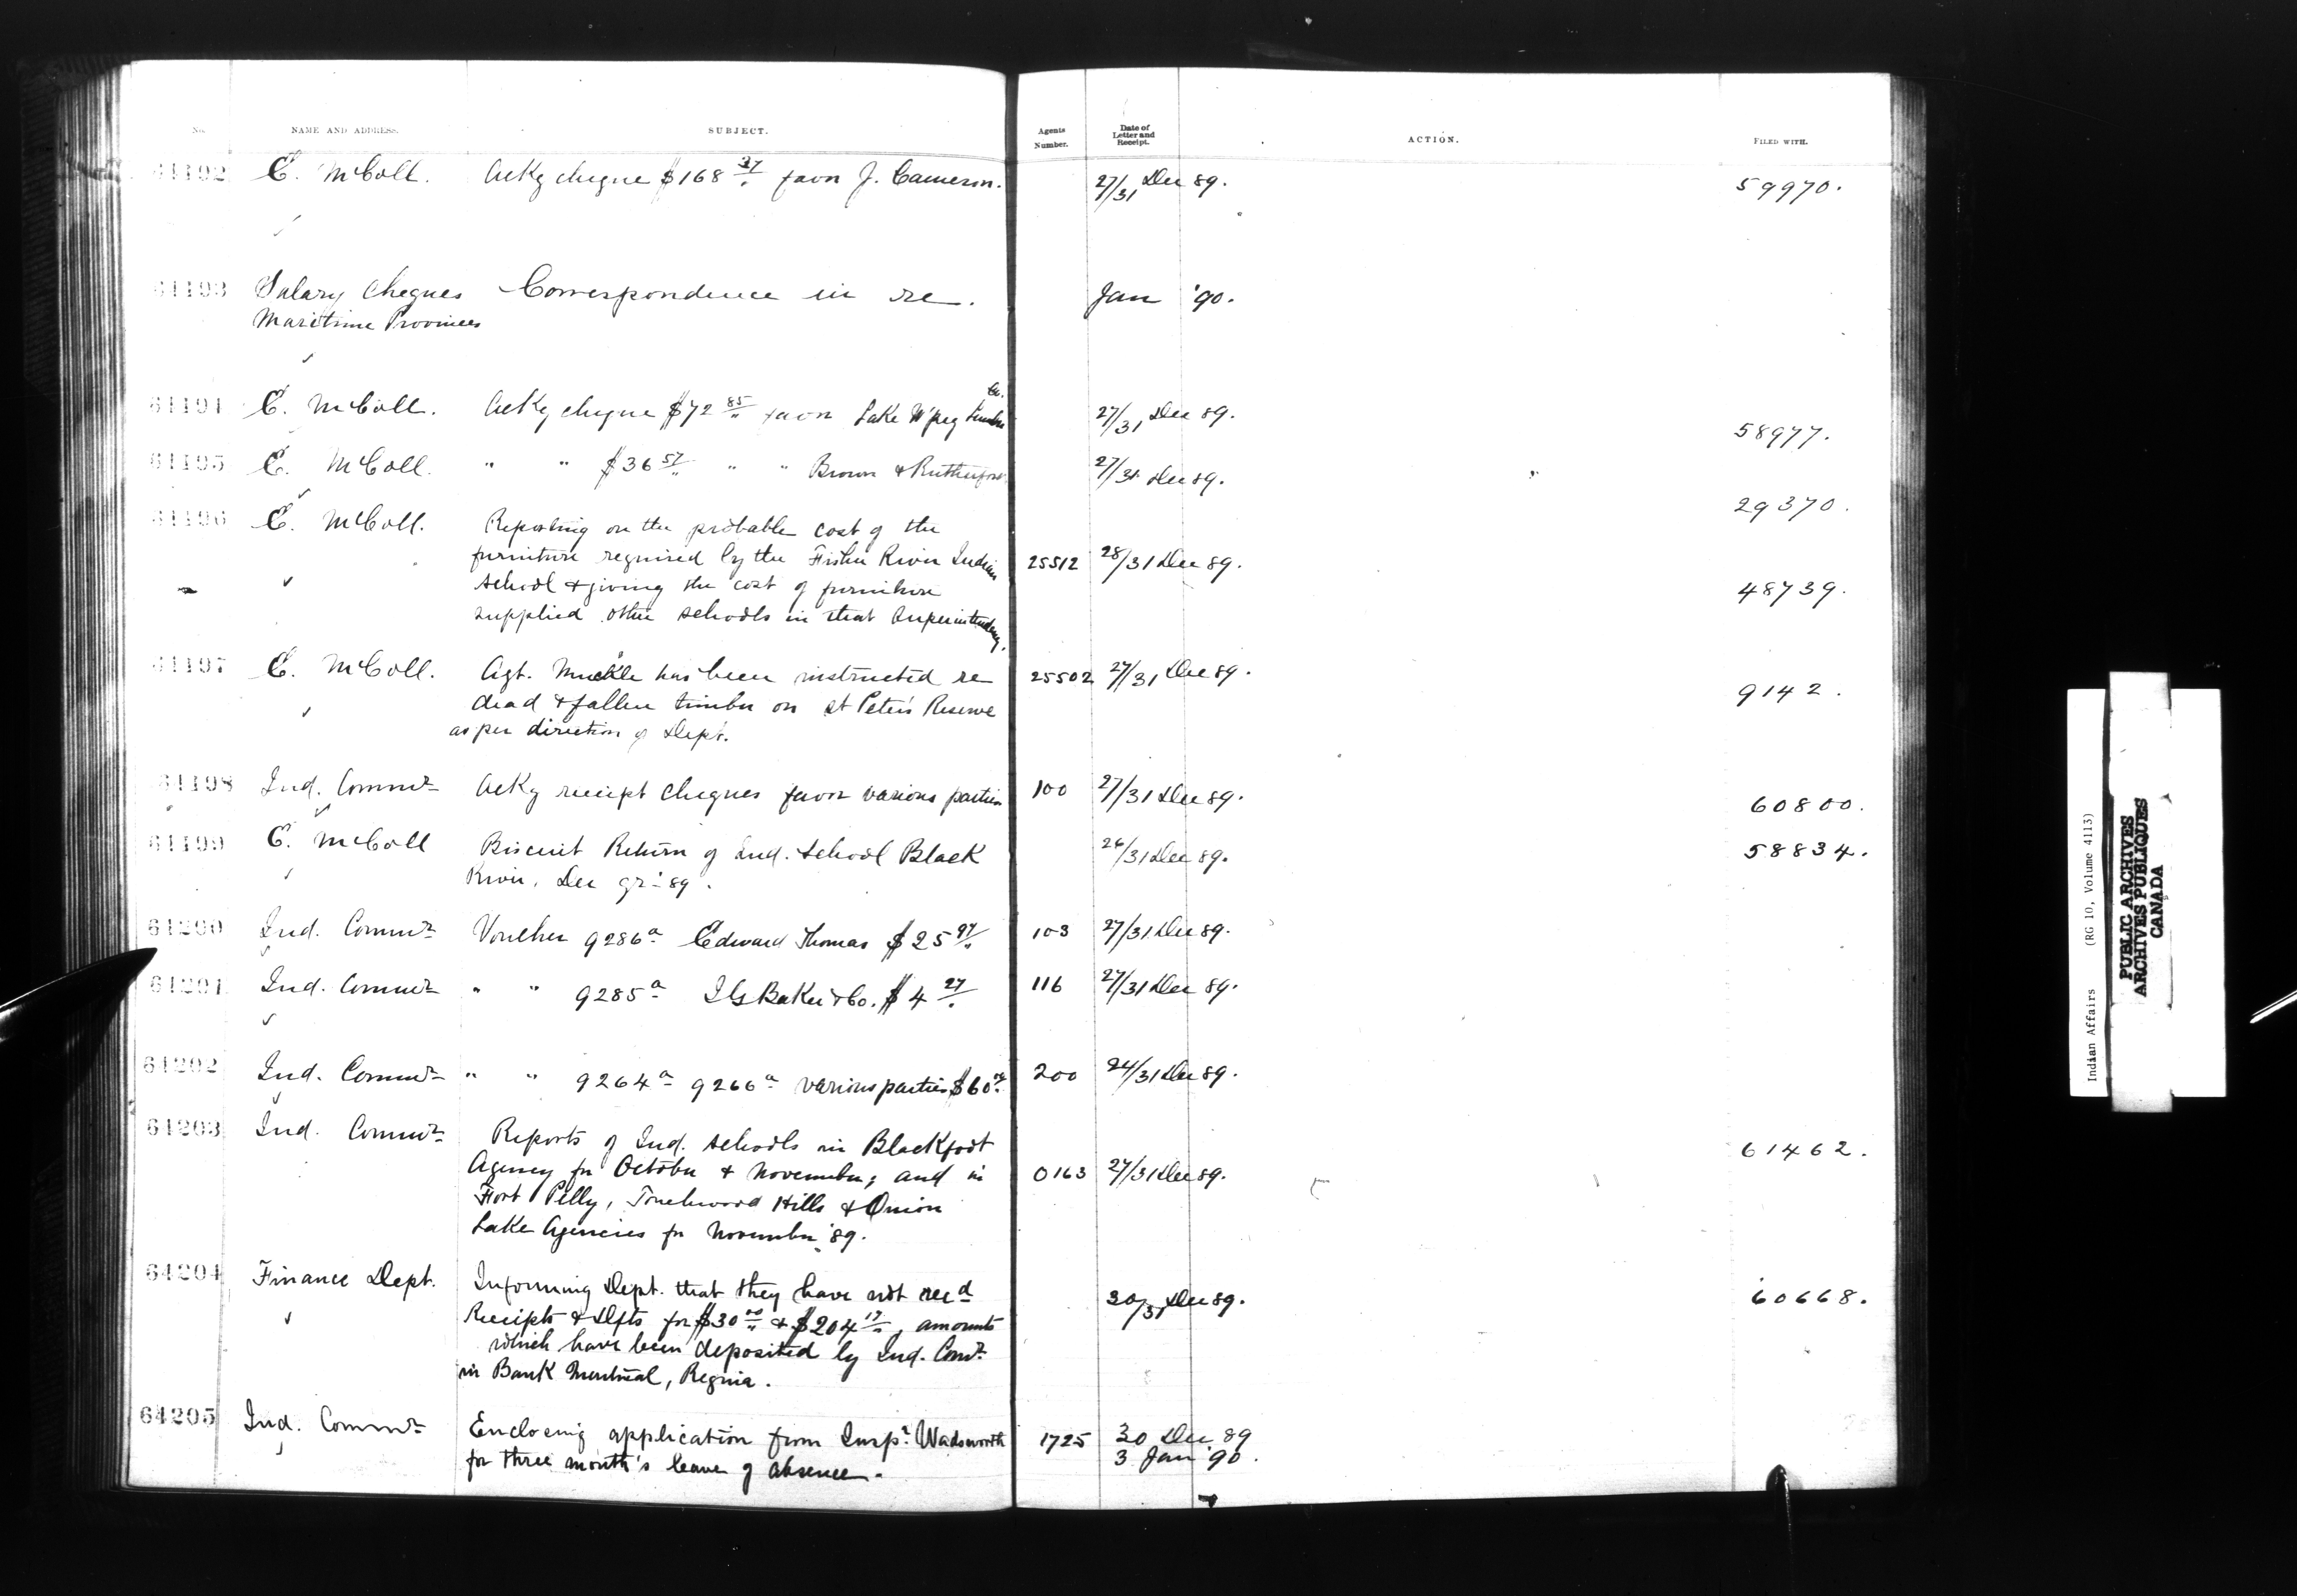 No. NAME AND ADDRESS. SUBJECT. Agents Number. Date of Letter and Receipt. ACTION. FILED WITH.
64192 E. McColl. Ackg cheque $168 37/" favor J. Cameron. 27/31 Dec 89. 59970.
64193 Salary Cheques Correspondence in re. Jan '90.
Maritime Provinces
64194 E. McColl. Ackg cheque $72 85/" favor Lake W'peg Lumber Co. 27/31 Dec 89. 58977.
64195 E. McColl. " " $36 57/" " " Brown & Rutherford 27/31 Dec 89. 29370.
64196 E. McColl. Reporting on the probable cost of the
furniture required by the Fisher River Indian 25512 28/31 Dec 89.
school & giving the cost of furniture 48739.
supplied other schools in that Superintendency.
64197 E. McColl. Agt. Muckle has been instructed re 25502 27/31 Dec 89. 9142.
dead & fallen timber on St Peter's Reserve
as per direction of Dept.
64198 Ind. Commr Ackg receipt cheques favor various parties 100 27/31 Dec 89. 60800.
64199 E. McColl Biscuit Return of Ind. School Black 26/31 Dec 89. 58834.
River, Dec qr 89.
64200 Ind. Commr Voucher 9286a Edward Thomas $25 97/" 103 27/31 Dec 89.
64201 Ind. Commr " " 9285a I G Baker & Co. $4 27/" 116 27/31 Dec 89.
64202 Ind. Commr " " 9264a 9266a various parties $60 200 24/31 Dec 89.
64203 Ind. Commr Reports of Ind. schools in Blackfoot 61462.
Agency for October & November; and in 0163 27/31 Dec 89.
Fort Pelly, Touchwood Hills & Onion
Lake Agencies for November '89.
64204 Finance Dept. Informing Dept. that they have not recd 30/31 Dec 89. 60668.
Receipts & Dfts for $30 00/" & $204 17/", amounts
which have been deposited by Ind. Comr
in Bank Montreal, Regina.
64205 Ind. Commr Enclosing application from Inspr Wadsworth 1725 30 Dec 89
for three month's leave of absence. 3 Jan '90.
Indian Affairs (RG 10, Volume 4113)
PUBLIC ARCHIVES
ARCHIVES PUBLIQUES
CANADA